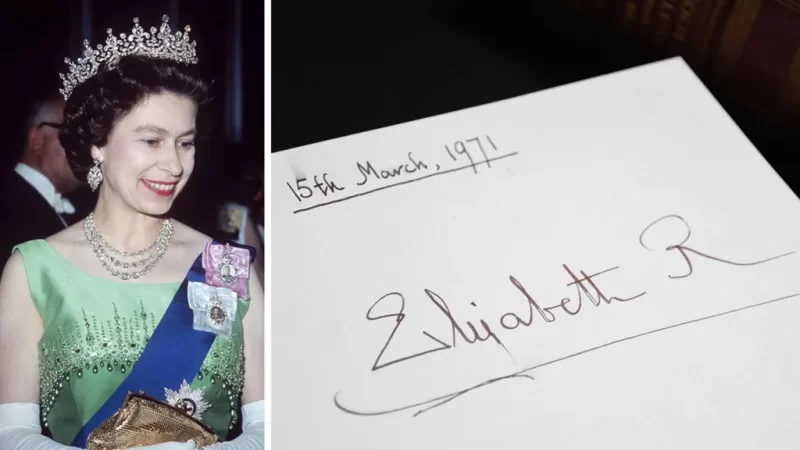 15th March, 1971
Elizabeth R